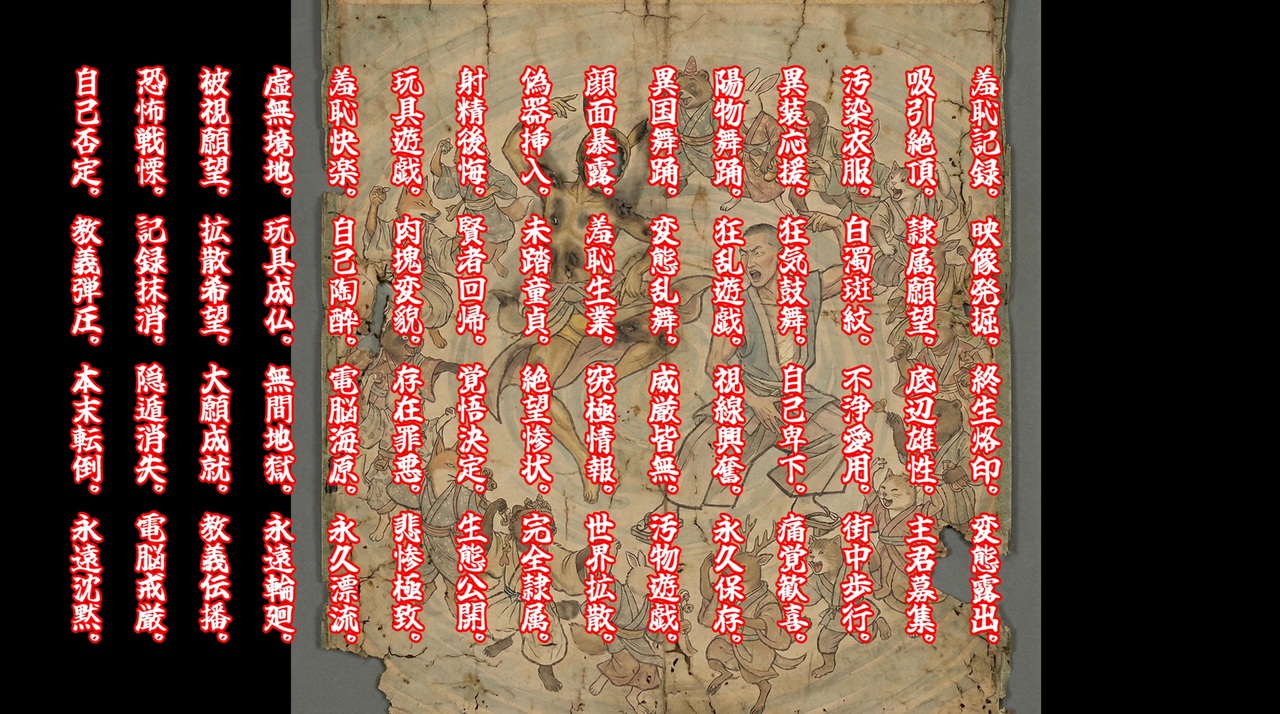 羞恥記録。映像発掘。終生烙印。変態露出。
吸引絶頂。隷属願望。底辺雄性。主君募集。
汚染衣服。白濁斑紋。不浄愛用。街中歩行。
異装応援。狂気鼓舞。自己卑下。痛覚歓喜。
陽物舞踊。狂乱遊戯。視線興奮。永久保存。
異国舞踊。変態乱舞。威厳皆無。汚物遊戯。
顔面暴露。羞恥生業。究極情報。世界拡散。
偽器挿入。未踏童貞。絶望惨状。完全隷属。
射精後悔。賢者回帰。覚悟決定。生態公開。
玩具遊戯。肉塊変貌。存在罪悪。悲惨極致。
羞恥快楽。自己陶酔。電脳海原。永久漂流。
虚無境地。玩具成仏。無間地獄。永遠輪廻。
被視願望。拡散希望。大願成就。教義伝播。
恐怖戦慄。記録抹消。隠遁消失。電脳戒厳。
自己否定。教義弾圧。本末転倒。永遠沈黙。